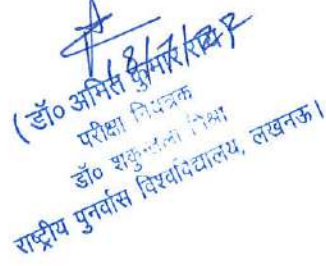 (डॉ० अमित कुमार राय)
परीक्षा नियंत्रक
डॉ० शकुन्तला मिश्रा
राष्ट्रीय पुनर्वास विश्वविद्यालय, लखनऊ।